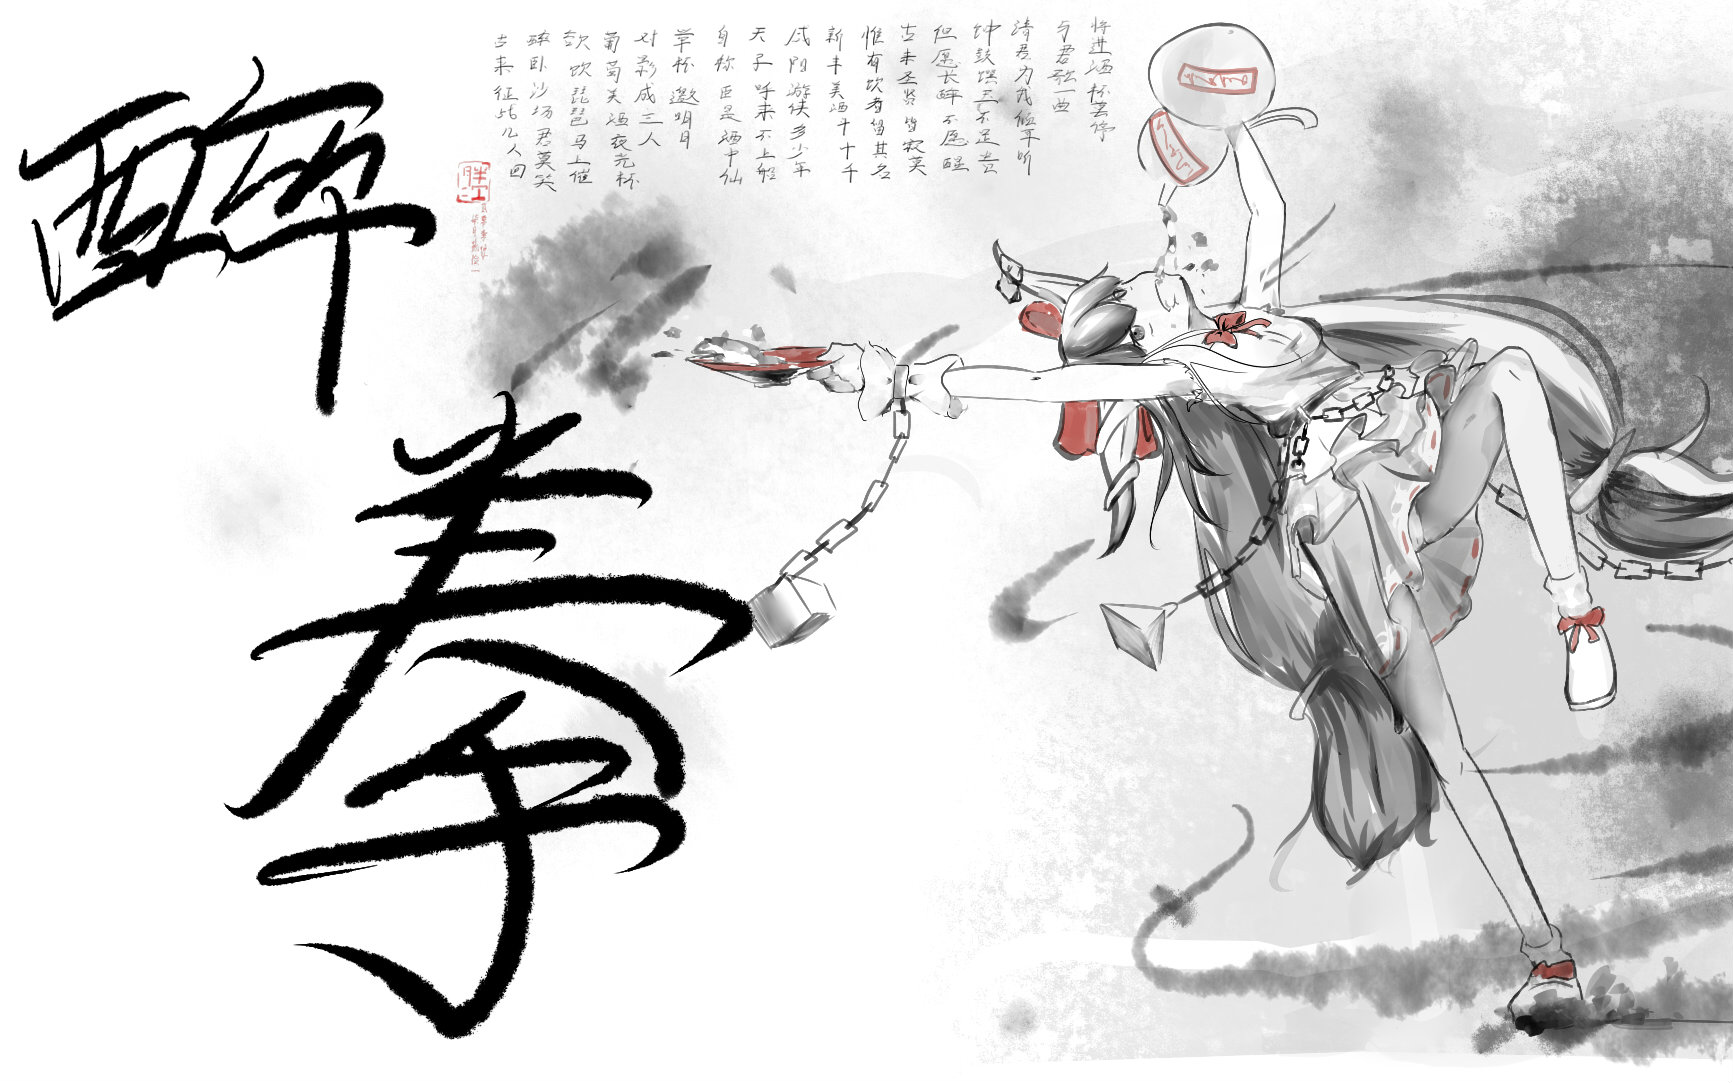 醉拳
将进酒杯莫停
与君歌一曲
请君为我倾耳听
钟鼓馔玉不足贵
但愿长醉不愿醒
古来圣贤皆寂莫
惟有饮者留其名
新丰美酒斗十千
咸阳游侠多少年
天子呼来不上船
自称臣是酒中仙
举杯邀明月
对影成三人
葡萄美酒夜光杯
欲饮琵琶马上催
醉卧沙场君莫笑
古来征战几人回